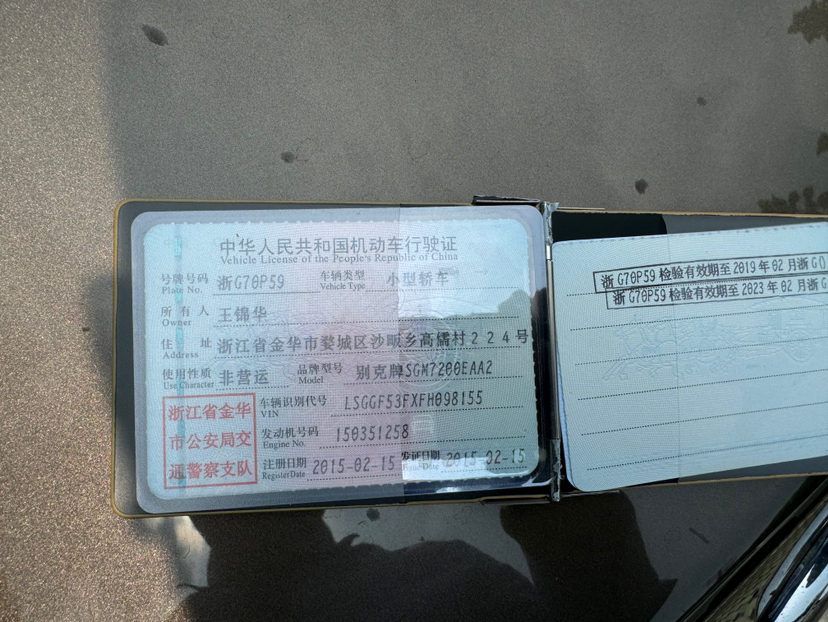 中华人民共和国机动车行驶证
Vehicle License of the People's Republic of China
号牌号码 浙G70P59 车辆类型 小型轿车
Plate No. Vehicle Type
所有人 王锦华
Owner
住址 浙江省金华市婺城区沙畈乡高儒村224号
Address
使用性质 非营运 品牌型号 别克牌SGM7200EAA2
Use Character Model
浙江省金华
市公安局交
通警察支队
车辆识别代号 LSGGF53FXFH098155
VIN
发动机号码 150351258
Engine No.
注册日期 2015-02-15 发证日期 2015-02-15
Register Date Issue Date
浙G70P59 检验有效期至2019年02月浙G0
浙G70P59 检验有效期至2023年02月浙G